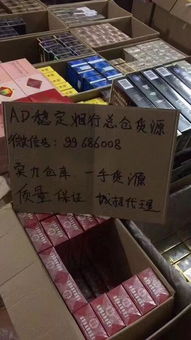 AD稳定烟行总仓货源
微信信: 99686008
实力仓库 一手货源
质量保证 城招代理